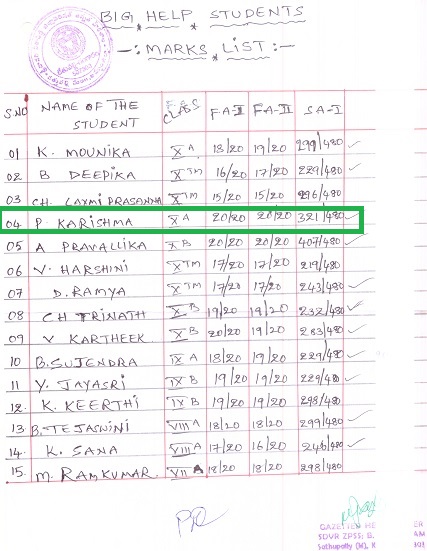 BIG HELP STUDENTS
-: MARKS LIST :-
S.NO NAME OF THE STUDENT CLASS FA-I FA-II SA-I
01 K. MOUNIKA X A 18/20 19/20 299/480
02 B DEEPIKA X TM 16/20 17/20 229/480
03 CH. LAXMI PRASANNA X TM 15/20 15/20 296/480
04 P. KARISHMA X A 20/20 20/20 321/480
05 A PRAVALLIKA X B 20/20 20/20 407/480
06 V. HARSHINI X TM 17/20 17/20 219/480
07 D. RAMYA X TM 17/20 17/20 243/480
08 CH TRINATH IX B 19/20 19/20 232/480
09 V KARTHEEK IX B 20/20 19/20 283/480
10 B. SUJENDRA IX A 18/20 19/20 229/480
11 Y. JAYASRI IX B 19/20 19/20 229/480
12. K. KEERTHI IX B 19/20 19/20 298/480
13 B. TEJASWINI VIII A 18/20 18/20 299/480
14. K. SANA VIII A 17/20 16/20 246/480
15. M. RAMKUMAR VII A 18/20 18/20 298/480
GAZETTED HE
SDVR ZPSS; B.
Sathupally (M),